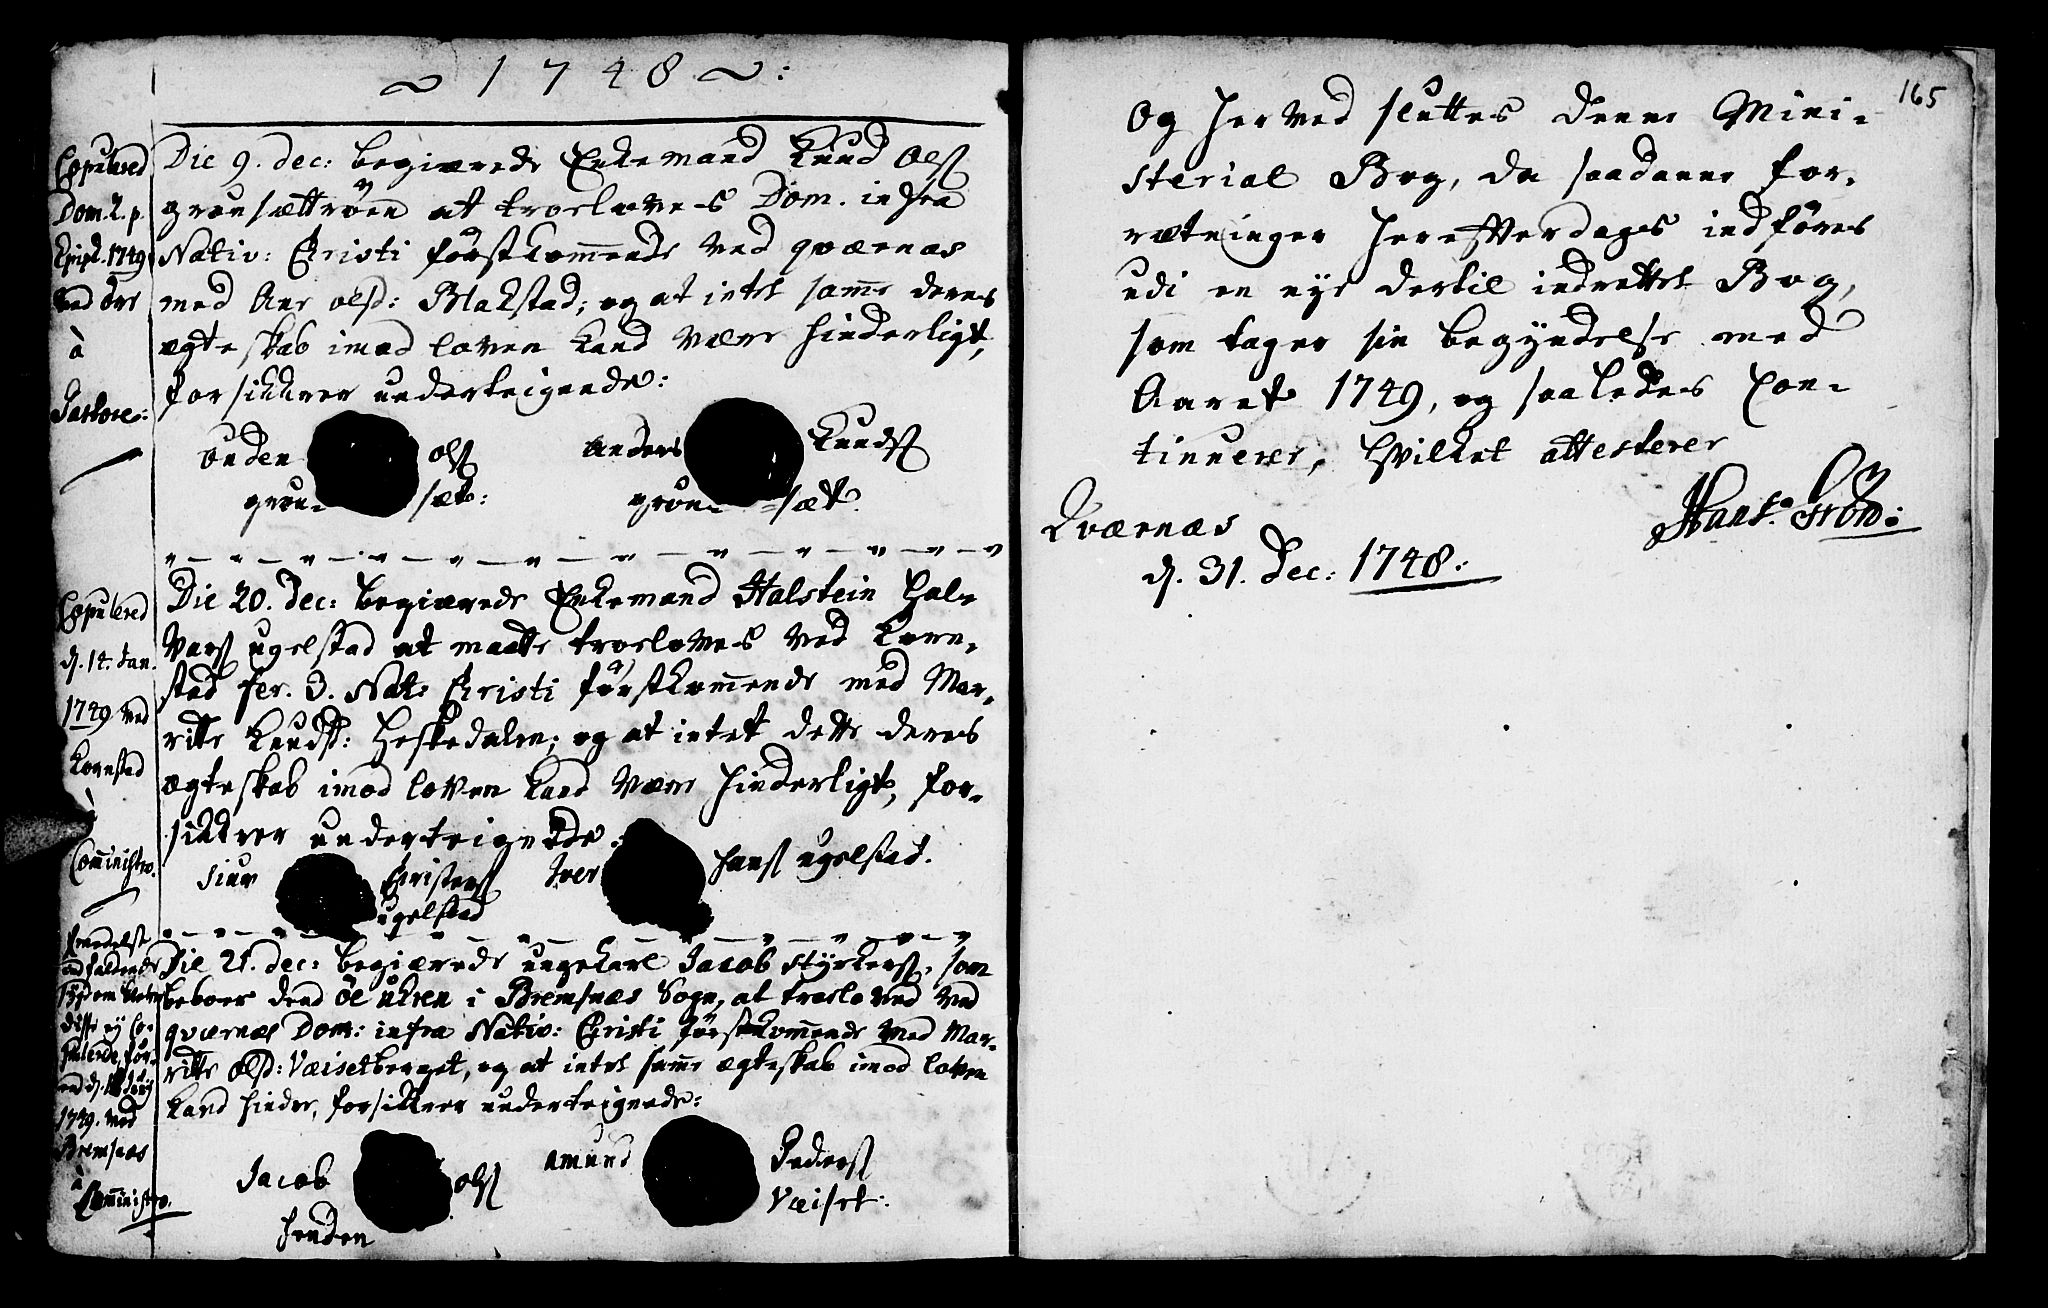 1748
Copulered
Dom. 2. p.
Epiph. 1749
ved
à
Pastore:
Die 9. dec: begiærede Enkemand Knud Ols
grønsættrøen at troeloves Dom. infra
Nativ: Christi førstkommende ved qværnæs
med Ane olsd: Blakstad; og at intet samme deres
ægteskab imod loven kand være hinderligt,
forsikkrer underteignede:
ols
Anders
Knuds
grøn-
sæt:
grøn-
sæt.
Copulered
d. 14. Jan.
1749 ved
Kornstad
à
Comministro.
Die 20. dec: begiærede Enkemand Halstein Hal-
vars ugelstad at maatte troeloves ved Korn-
stad fer. 3. Nat: Christi førstkommende med Mar-
ritte Knudsd: Heskedalen; og at intet dette deres
ægteskab imod loven kand være hinderligt, for-
sikkrer underteignede:
Siur
Christens
ugelstad
Iver
Hans ugelstad.
1749. ved
Bremsnæs
à
Comministro.
Die 21. dec: begiærede ungekarl Jacob Styrkers, som
beboer dend øe ukren i Bremsnæs Sogn, at troeloved ved
qværnæs Dom: infra Nativ: Christi førstkommende med Mar-
ritte Olsd: Væisetberget, og at intet samme ægteskab imod loven
kand hindre, forsikkrer underteignede:
Jacob
ols
henden
Amund
Peders
Væiset:
165
Og herved sluttes denne Mini-
sterial Bog, da saadanne for-
rætninger herefterdags indføres
udi en nye dertil indrettet Bog,
som tager sin begyndelse med
Aaret 1749, og saaledes con-
tinuerer, hvilket attesterer
Qværnæs
d. 31. Dec: 1748.
Hans